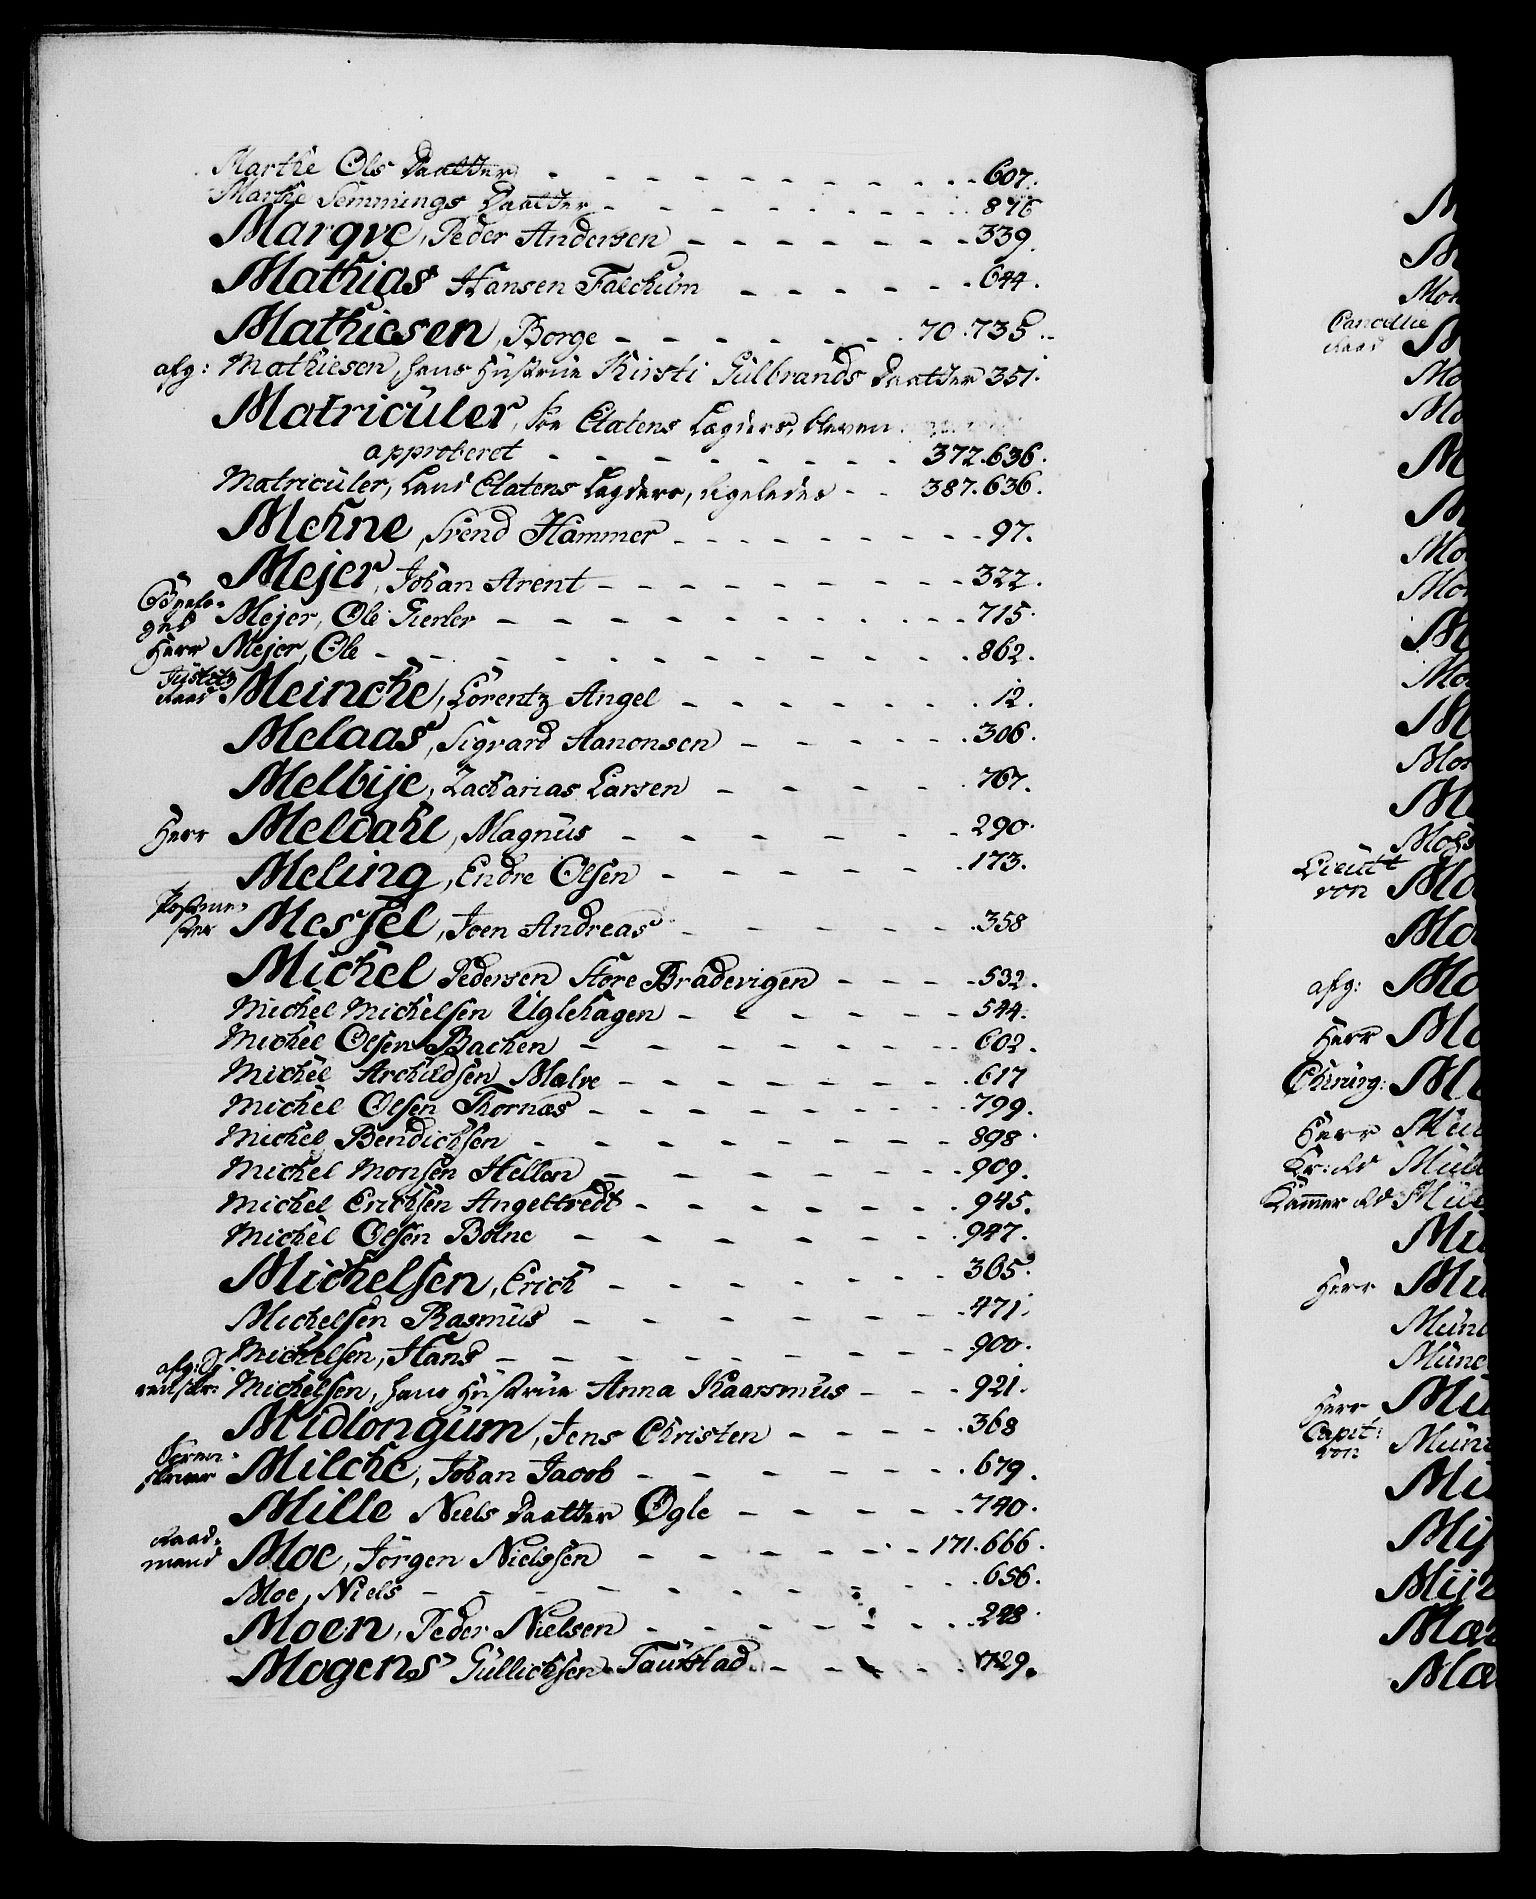 Marthe Ols Daatter - - - - - - - - - - 607.
Marthe Semmings Daatter - - - - - - - - 876
Marqve, Peder Andersen - - - - - - - 339.
Mathias Hansen Falchum - - - - - - 644.
Mathiesen, Borge - - - - - - 70.735.
afg: Mathiesen, hans Hustrue Kirsti Gulbrands Daatter 351.
Matriculer, Søe Etatens Lægders, bleven
approberet - - - - - - - - 372.636.
Matriculer, Land Etatens Lægders, ligeledes - - 387.636.
Mehne, Svend Hammer - - - - - - - - 97.
Mejer, Johan Arent - - - - - - - - 322.
Mejer, Ole - - - - - - - - - - 715.
Herr Mejer, Ole - - - - - - - - - - - 862.
Justitz
Raad Meincke, Lorentz Angel - - - - - - - 12.
Melaas, Sigvard Aanonsen - - - - - 306.
Melbije, Zacharias Larsen - - - - - 767.
Herr Meldahl, Magnus - - - - - - - 290.
Meling, Endre Olsen - - - - - - - 173.
Postme-
ster Messel, Joen Andreas - - - - - - 358
Michel Pedersen Store Bradevigen - - - 532.
Michel Michelsen Uglehagen - - - - - - 544.
Michel Olsen Bachen - - - - - - - - 602.
Michel Archildsen Malve - - - - - - - 617
Michel Olsen Thornæs - - - - - - - - 799.
Michel Bendichsen - - - - - - - - - 898.
Michel Monsen Hellen - - - - - - - - 909.
Michel Erichsen Angeltredt - - - - - - - 945.
Michel Olsen Bolne - - - - - - - - 947.
Michelsen, Erich - - - - - - - - 365.
Michelsen Rasmus - - - - - - - - 471.
Michelsen, Hans - - - - - - - - - 900.
afg:
Michelsen, hans Hustrue Anna Kaarsmus - - - 921.
Midlongum, Jens Christen - - - - - 368
skriver Milche, Johan Jacob - - - - - - - 679.
Mille Niels Daatter Ogle - - - - - 740.
Raad-
mand Moe, Jörgen Nielssen - - - - - - 171.666.
Moe, Niels - - - - - - - - - - 656.
Moen, Peder Nielsen - - - - - - - 248.
Mogens Gullichsen Taukstad - - - - - 729.
Cancellie
Raad
Lieut
von
afg:
Herr
Chirurg:
Herr
Kr: Rd
Kammer Rd
Herr
Herr
Capit:
von